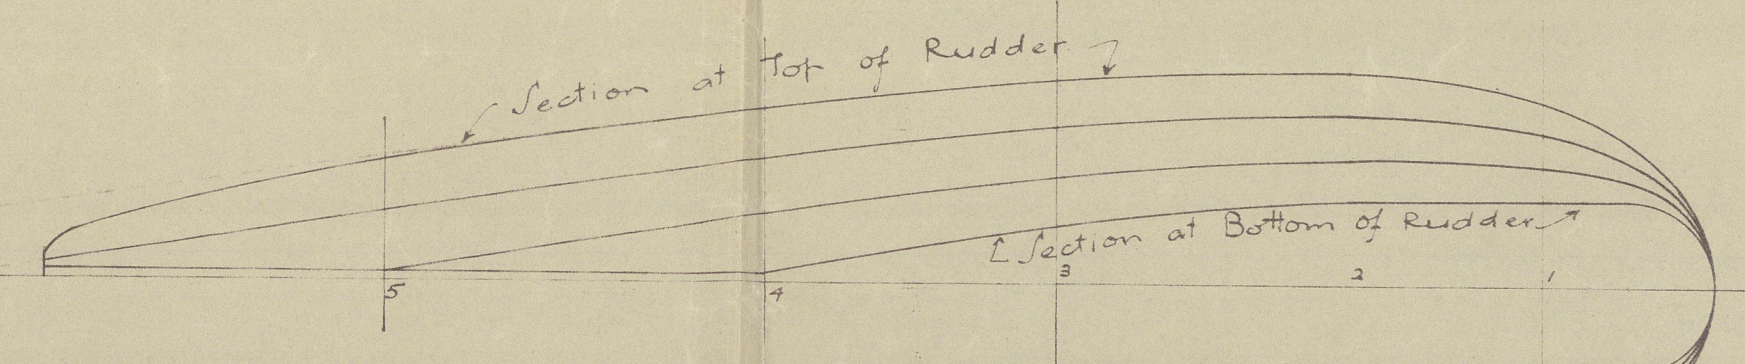 Section at Top of Rudder
Section at Bottom of Rudder
5
4
3
2
1